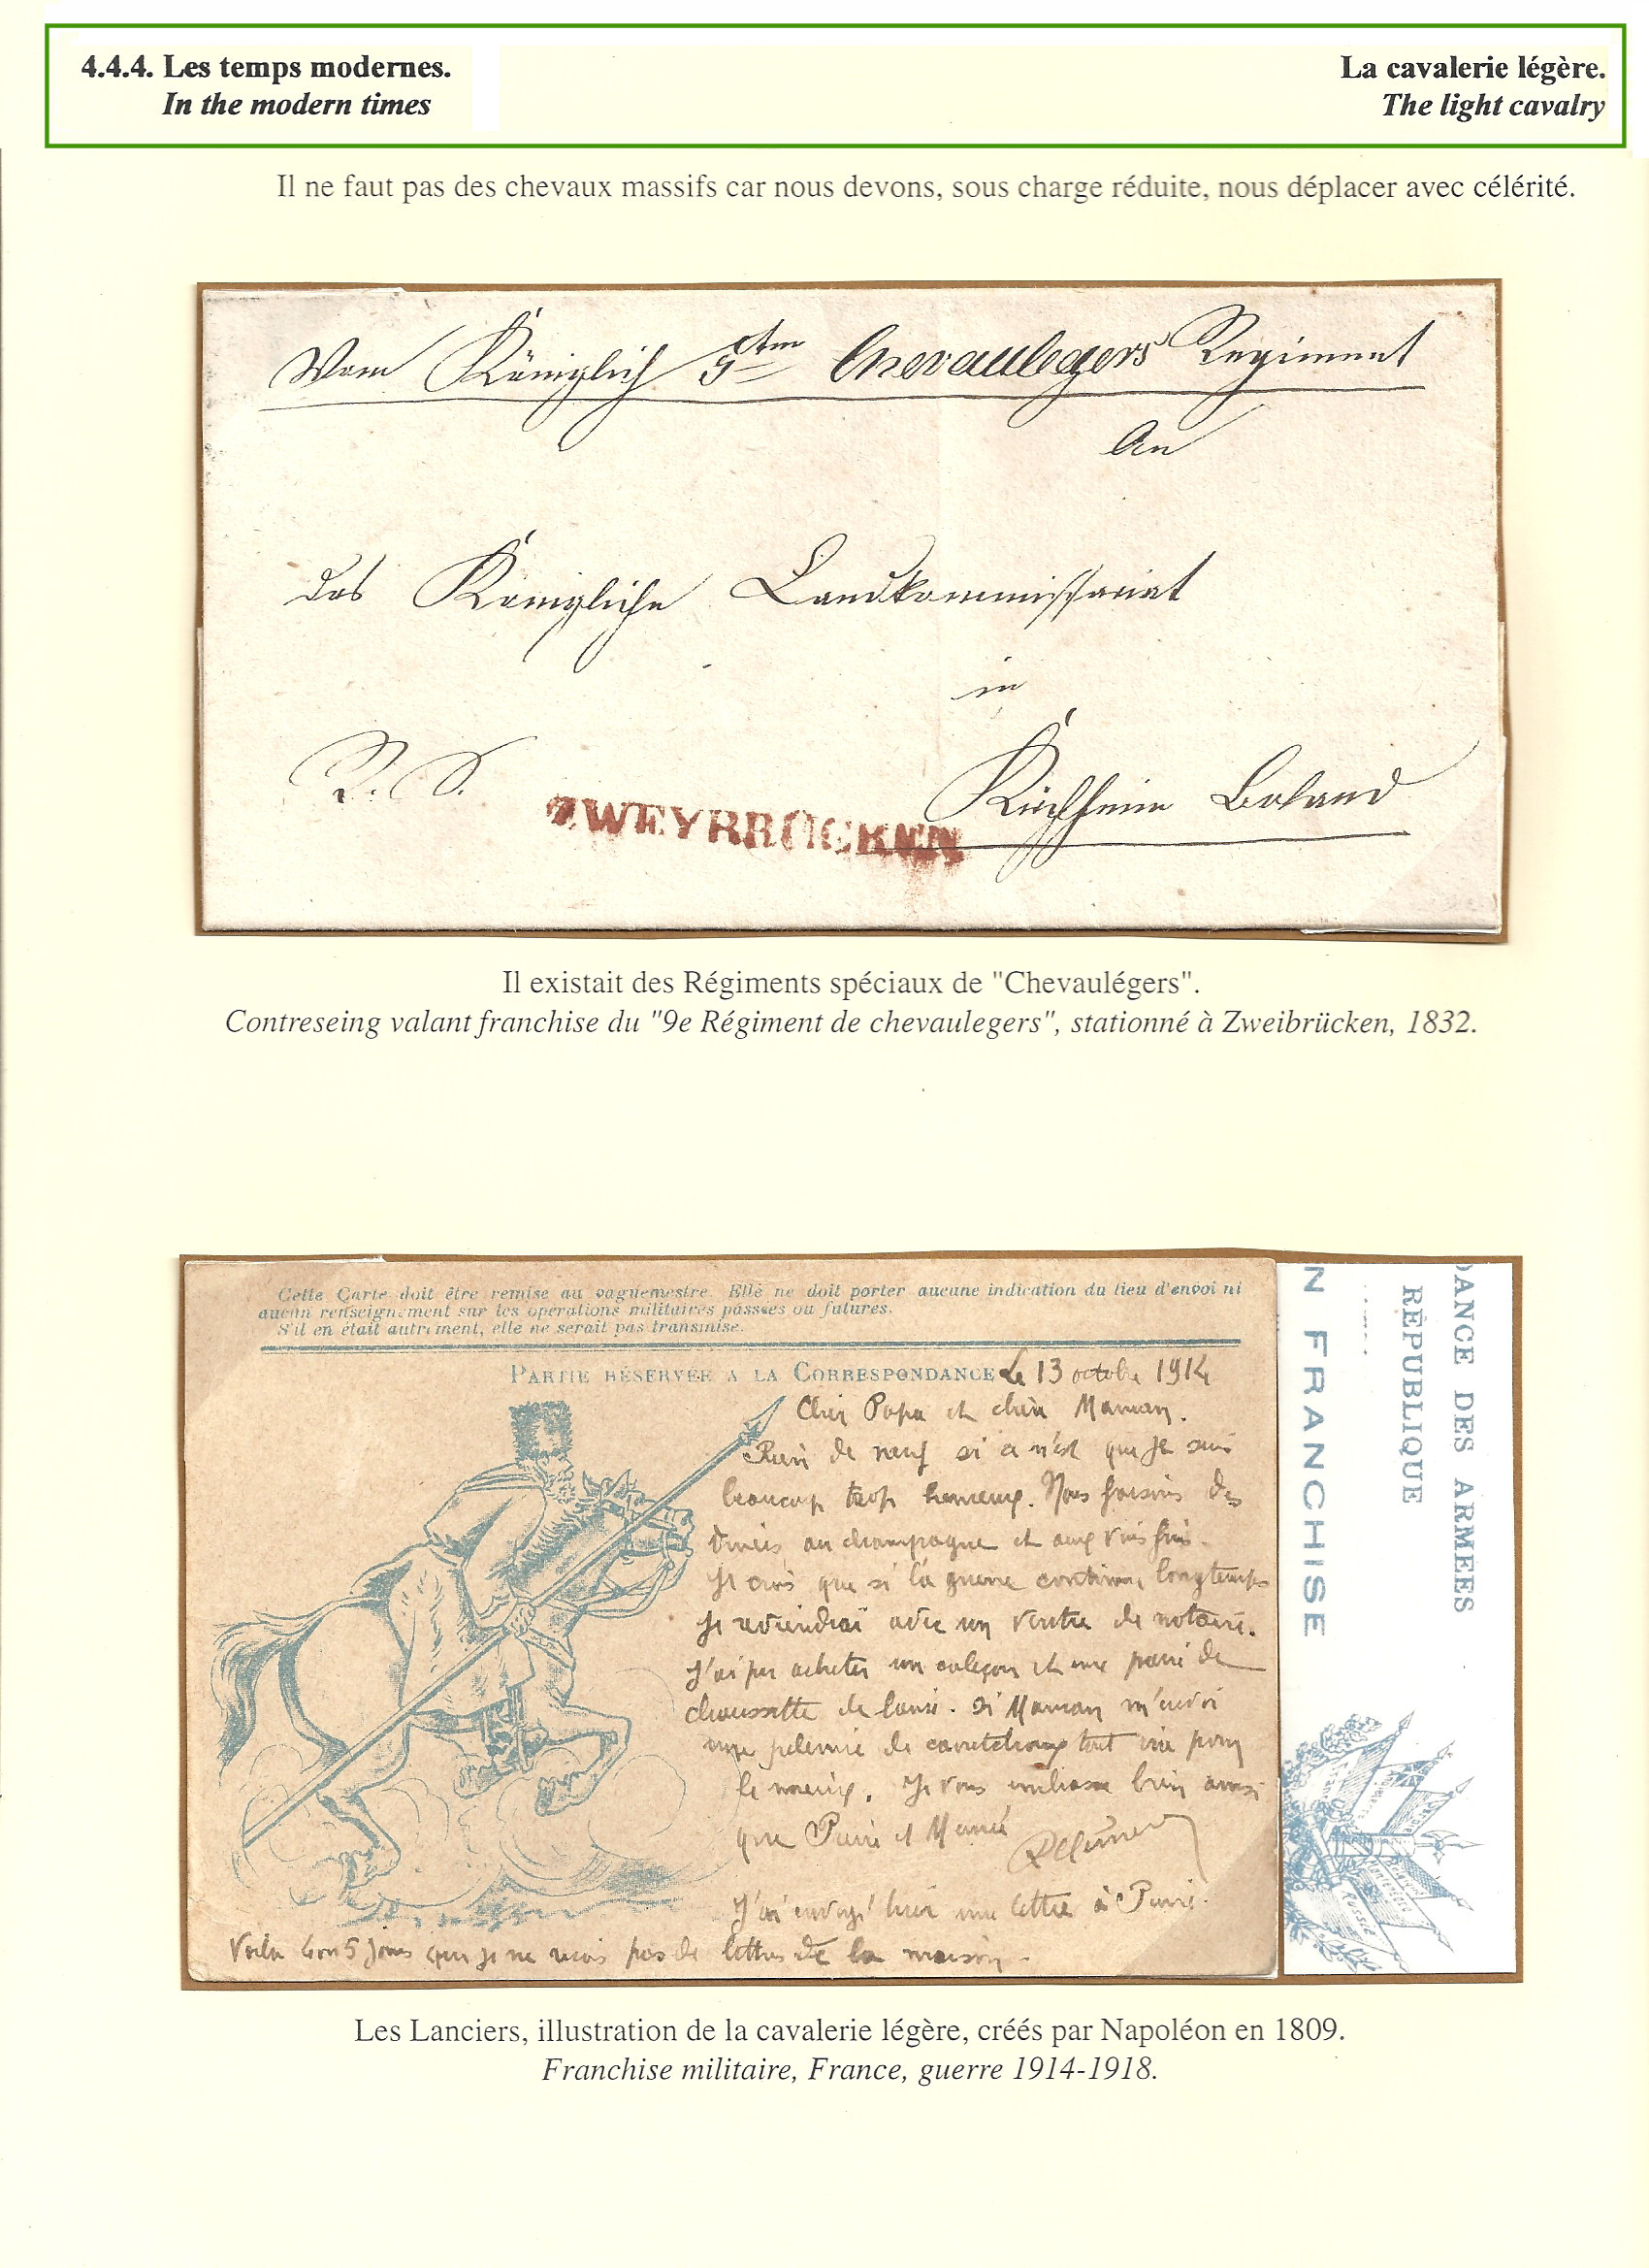 4.4.4. Les temps modernes.
In the modern times
La cavalerie légère.
The light cavalry
Il ne faut pas des chevaux massifs car nous devons, sous charge réduite, nous déplacer avec célérité.
Vom Königlich 5tn Chevaulegers Regiment
An
das Königliche Landkommissariat
in
R. S.
ZWEYBRÜCKEN
Kirchheim Boland
Il existait des Régiments spéciaux de "Chevaulégers".
Contreseing valant franchise du "9e Régiment de chevaulegers", stationné à Zweibrücken, 1832.
Cette Carte doit être remise au vaguemestre. Elle ne doit porter aucune indication du lieu d'envoi ni
aucun renseignement sur les opérations militaires passées ou futures.
S'il en était autrement, elle ne serait pas transmise.
PARTIE RÉSERVÉE A LA CORRESPONDANCE
Le 13 octobre 1914
Cher Papa et chère Maman.
Rien de neuf si ce n'est que je suis
beaucoup trop heureux. Nous faisons des
diners au champagne et aux vins fins.
Je crois que si la guerre continue longtemps
Je reviendrai avec un ventre de notaire.
J'ai pu acheter un caleçon et une paire de
chaussette de laine. Si Maman m'envoi
une pelerine de caoutchouc tout ira pour
le mieux. Je vous embrasse bien ainsi
que Pierre et
J'ai envoyé hier une lettre à Pierre.
Voila 4 ou 5 jours que je ne reçois pas de lettres de la maison.
DANCE DES ARMEES
RÉPUBLIQUE
N FRANCHISE
RUSSIE
Les Lanciers, illustration de la cavalerie légère, créés par Napoléon en 1809.
Franchise militaire, France, guerre 1914-1918.